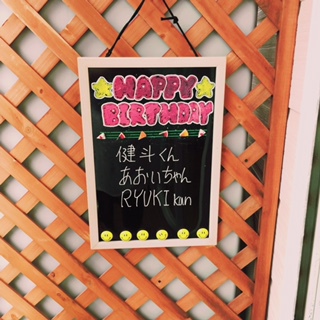 HAPPY
BIRTHDAY
健斗くん
あおいちゃん
RYUKI kun